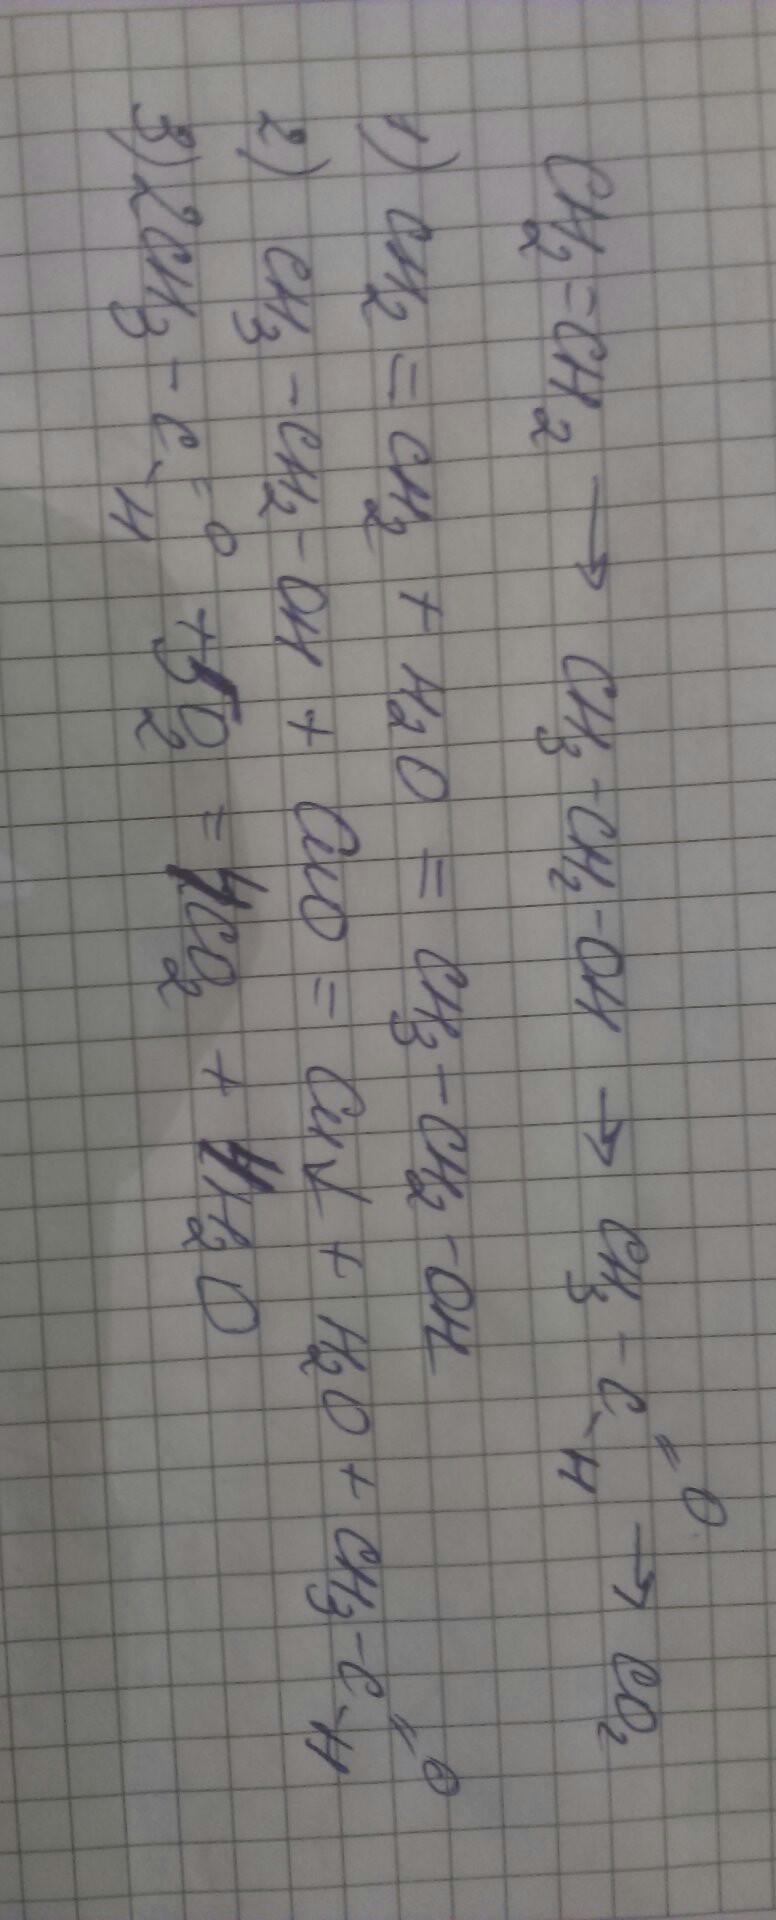 CH₂=CH₂ → CH₃-CH₂-OH → CH₃-C(=O)-H → CO₂
1) CH₂ = CH₂ + H₂O = CH₃-CH₂-OH
2) CH₃-CH₂-OH + CuO = Cu↓ + H₂O + CH₃-C(=O)-H
3) 2CH₃-C(=O)-H + 5O₂ = 4CO₂ + 4H₂O